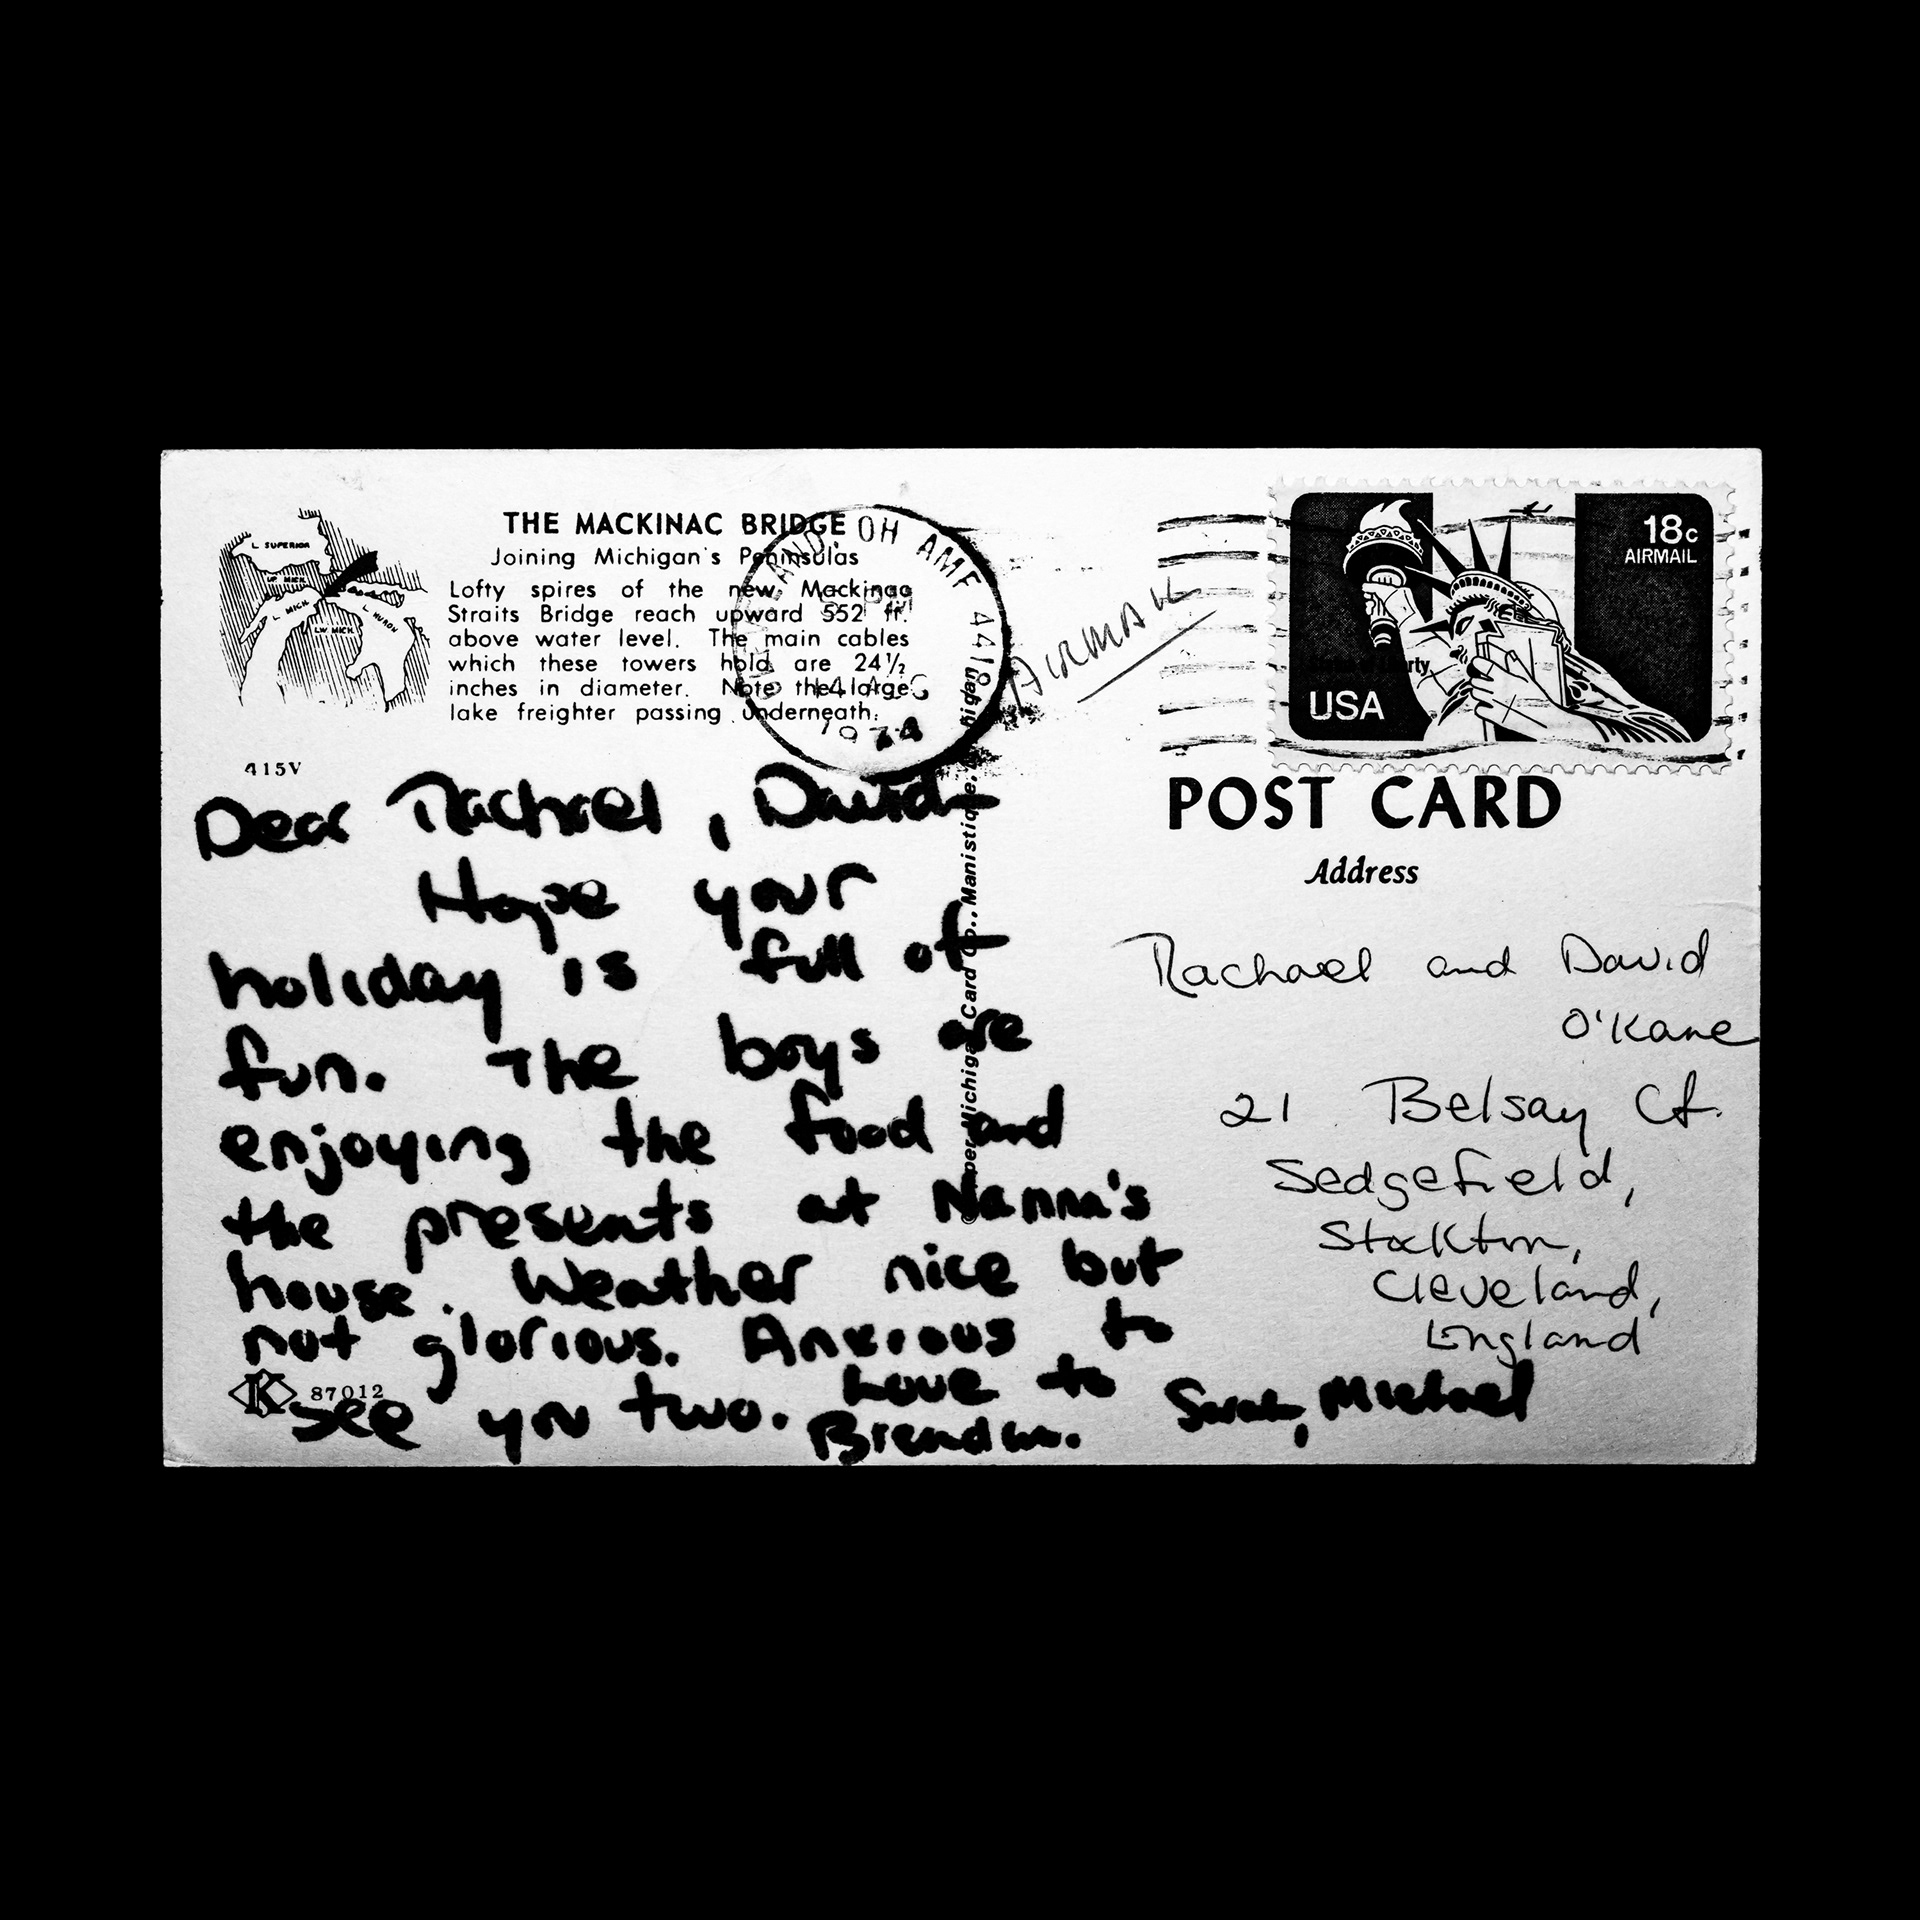 THE MACKINAC BRIDGE
Joining Michigan's Peninsulas
Lofty spires of the new Mackinac
Straits Bridge reach upward 552 ft.
above water level. The main cables
which these towers hold are 24½
inches in diameter. Note the large
lake freighter passing underneath.
L. SUPERIOR
UP. MICH.
L. MICH.
L. HURON
LW. MICH.
415V
OH AMF
PM
14 AUG
1974
AIRMAIL
18c
AIRMAIL
USA
POST CARD
Address
Dear Rachael, David—
Hope your
holiday is full of
fun. The boys are
enjoying the food and
the presents at Nanna's
house. Weather nice but
not glorious. Anxious to
see you two. Love to Sarah, Michael
Brendan.
K 87012
Card Co., Manistique, Michigan
Rachael and David
O'Kane
21 Belsay Ct.
Sedgefield,
Stockton,
Cleveland,
England